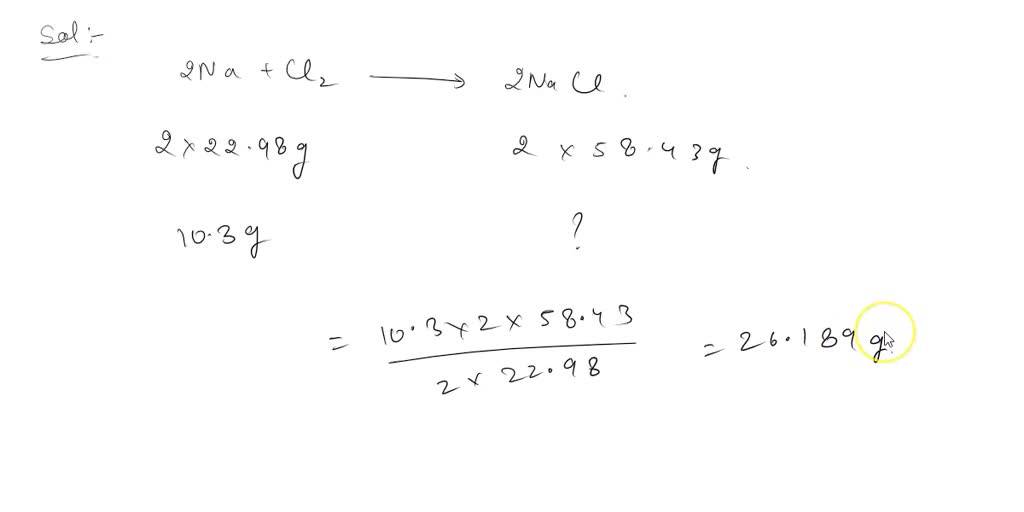 Sol :-
2Na + Cl2 → 2NaCl.
2 × 22.98g 2 × 58.43g.
10.3g ?
= 10.3 × 2 × 58.43 / 2 × 22.98 = 26.189 g.